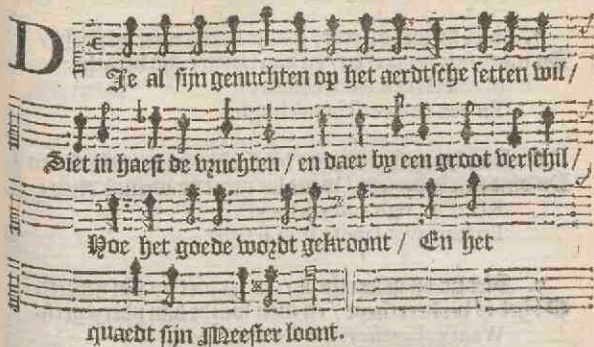 DIe al sijn genuchten op het aerdtsche setten wil /
Siet in haest de vruchten / en daer by een groot verschil /
Hoe het goede wordt gekroont / En het
quaedt sijn Meester loont.